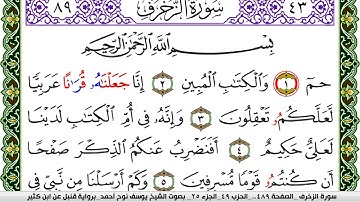 ٨٩ سُورَةُ الزُّخْرُفِ ٤٣
بِسْمِ اللَّهِ الرَّحْمَٰنِ الرَّحِيمِ
حمٓ ١ وَالْكِتَٰبِ الْمُبِينِ ٢ إِنَّا جَعَلْنَٰهُۥ قُرَٰنًا عَرَبِيًّا
لَّعَلَّكُمُۥ تَعْقِلُونَ ٣ وَإِنَّهُۥ فِىٓ أُمِّ الْكِتَٰبِ لَدَيْنَا
لَعَلِىٌّ حَكِيمٌ ٤ أَفَنَضْرِبُ عَنكُمُ الذِّكْرَ صَفْحًا
أَن كُنتُمُۥ قَوْمًا مُّسْرِفِينَ ٥ وَكَمْ أَرْسَلْنَا مِن نَّبِىٍّ فِى
سورة الزخرف . الصفحة ٤٨٩. الحزب ٤٩ . الجزء ٢٥ . بصوت الشيخ يوسف نوح أحمد . برواية قنبل عن ابن كثير